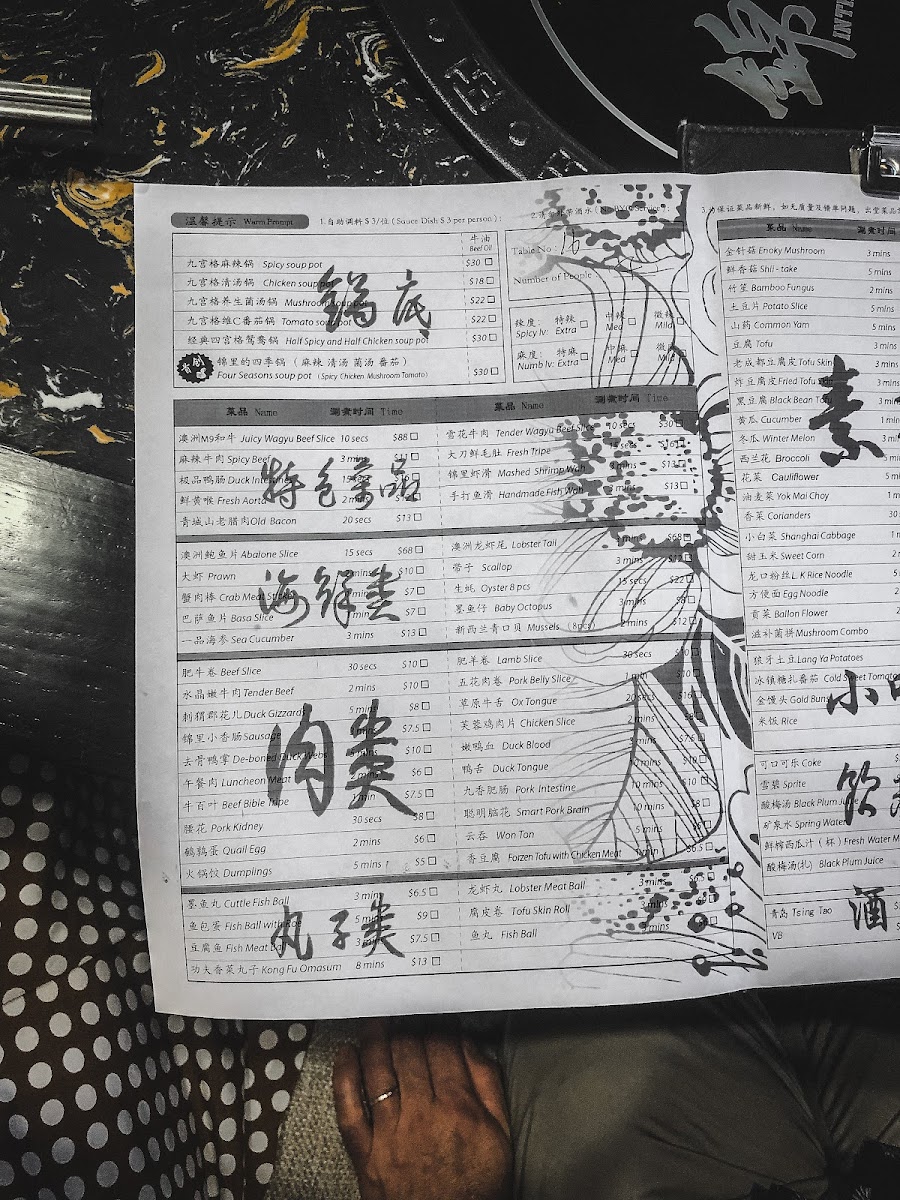 锦
INTE
温馨提示 Warm Prompt 1.自助调料$3/位(Sauce Dish $3 per person);
牛油
Beef Oil
九宫格麻辣锅 Spicy soup pot $30 □
九宫格清汤锅 Chicken soup pot $18 □
九宫格养生菌汤锅 Mushroom soup pot $22 □
九宫格维C番茄锅 Tomato soup pot $22 □
经典四宫格鸳鸯锅 Half Spicy and Half Chicken soup pot $30 □
锦里的四季锅(麻辣 清汤 菌汤 番茄)
Four Seasons soup pot (Spicy Chicken Mushroom Tomato) $30 □
锅底
Table No: 16
Number of People
辣度: 特辣 中辣 微辣
Spicy lv: Extra □ Med □ Mild □
麻度: 特麻 中麻
Numb lv: Extra □ Med □
菜品 Name 涮煮时间 Time
澳洲M9和牛 Juicy Wagyu Beef Slice 10 secs $88 □
麻辣牛肉 Spicy Beef 3 mins $11 □
极品鸭肠 Duck Intestines
鲜黄喉 Fresh Aorta 2 mins
青城山老腊肉 Old Bacon 20 secs $13 □
特色菜品
澳洲鲍鱼片 Abalone Slice 15 secs $68 □
大虾 Prawn $10 □
蟹肉棒 Crab Meat Sticks $7 □
巴萨鱼片 Basa Slice $7 □
一品海参 Sea Cucumber 3 mins $13 □
海鲜类
肥牛卷 Beef Slice 30 secs $10 □
水晶嫩牛肉 Tender Beef 2 mins $10 □
刺猬郡花儿 Duck Gizzards 5 mins $8 □
锦里小香肠 Sausage $7.5 □
去骨鸭掌 De-boned Duck Webs $10 □
午餐肉 Luncheon Meat $6 □
牛百叶 Beef Bible Tripe 1 min $7.5 □
腰花 Pork Kidney 30 secs $8 □
鹌鹑蛋 Quail Egg 2 mins $6 □
火锅饺 Dumplings 5 mins $5 □
肉类
墨鱼丸 Cuttle Fish Ball 3 mins $6.5 □
鱼包蛋 Fish Ball with Roe 5 mins $9 □
豆腐鱼 Fish Meat Ball 3 mins $7.5 □
功夫香菜丸子 Kong Fu Omasum 8 mins $13 □
丸子类
菜品 Name 涮煮时间 Time
雪花牛肉 Tender Wagyu Beef Slice 10 secs $30 □
大刀鲜毛肚 Fresh Tripe $16 □
锦里虾滑 Mashed Shrimp Wah 3 mins $13 □
手打鱼滑 Handmade Fish Wah $13 □
澳洲龙虾尾 Lobster Tail 1 mins $68 □
带子 Scallop 3 mins
生蚝 Oyster 8 pcs 15 secs $22 □
墨鱼仔 Baby Octopus 3 mins $8 □
新西兰青口贝 Mussels (8pcs) 2 mins $12 □
肥羊卷 Lamb Slice 30 secs $10 □
五花肉卷 Pork Belly Slice 1 min $10 □
草原牛舌 Ox Tongue 20 secs $16 □
芙蓉鸡肉片 Chicken Slice 2 mins $8 □
嫩鸭血 Duck Blood mins $7.5 □
鸭舌 Duck Tongue mins $10 □
九香肥肠 Pork Intestine 10 mins $10 □
聪明脑花 Smart Pork Brain 10 mins $8 □
云吞 Won Ton 5 mins $6 □
香豆腐 Forzen Tofu with Chicken Meat $6.5 □
龙虾丸 Lobster Meat Ball 3 mins $6.5 □
腐皮卷 Tofu Skin Roll
鱼丸 Fish Ball
菜品 Name 涮煮时间
金针菇 Enoky Mushroom 3 mins
鲜香菇 Shii-take 5 mins
竹笙 Bamboo Fungus 2 mins
土豆片 Potato Slice 5 mins
山药 Common Yam 5 mins
豆腐 Tofu 3 mins
老成都豆腐皮 Tofu Skin 3 mins
炸豆腐皮 Fried Tofu 3 mins
黑豆腐 Black Bean Tofu
黄瓜 Cucumber 1
冬瓜 Winter Melon
西兰花 Broccoli
花菜 Cauliflower 5
油麦菜 Yok Mai Choy 1
香菜 Corianders 30
小白菜 Shanghai Cabbage 1
甜玉米 Sweet Corn 2
龙口粉丝 L.K Rice Noodle 5
方便面 Egg Noodle 2
贡菜 Ballon Flower 2
滋补菌拼 Mushroom Combo
素
狼牙土豆 Lang Ya Potatoes
冰镇糖扎番茄 Cold Sweet Tomato
金馒头 Gold Buns
米饭 Rice
小吃
可口可乐 Coke
雪碧 Sprite
酸梅汤 Black Plum Juice
矿泉水 Spring Water
鲜榨西瓜汁(杯) Fresh Water M
酸梅汤(扎) Black Plum Juice
饮
青岛 Tsing Tao
VB
酒